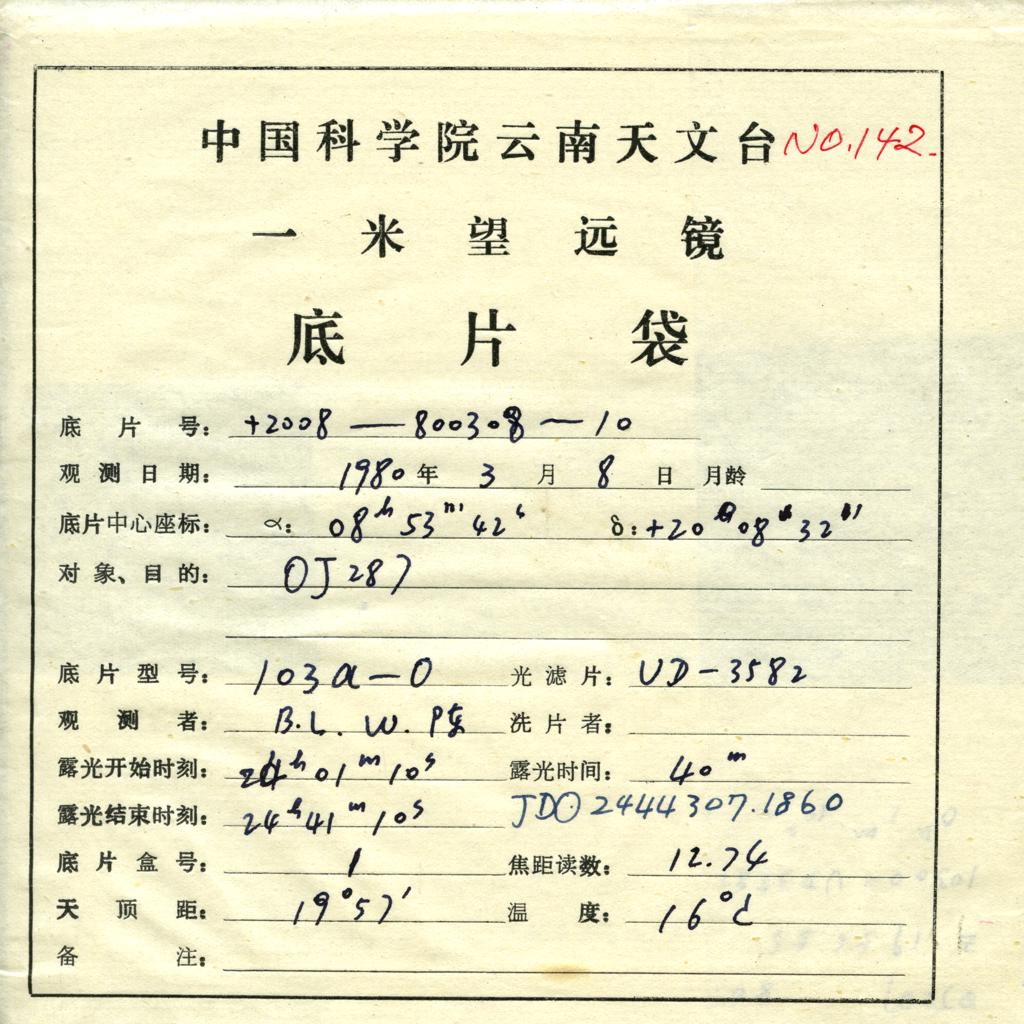 中国科学院云南天文台 NO.142.
一米望远镜
底片袋
底片号: +2008 — 800308 — 10
观测日期: 1980年 3月 8日 月龄
底片中心座标: α: 08h 53m 42s δ: +20° 08' 32"
对象、目的: OJ287
底片型号: 103a-O 光滤片: UD-3582
观测者: B.L. W. 陈 洗片者:
露光开始时刻: 24h 01m 10s 露光时间: 40m
露光结束时刻: 24h 41m 10s JD⊙2444307.1860
底片盒号: 1 焦距读数: 12.74
天顶距: 19°57' 温度: 16°C
备注: